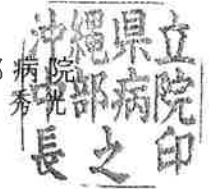 部病院
秀光
沖縄県立
中部病院
長之印